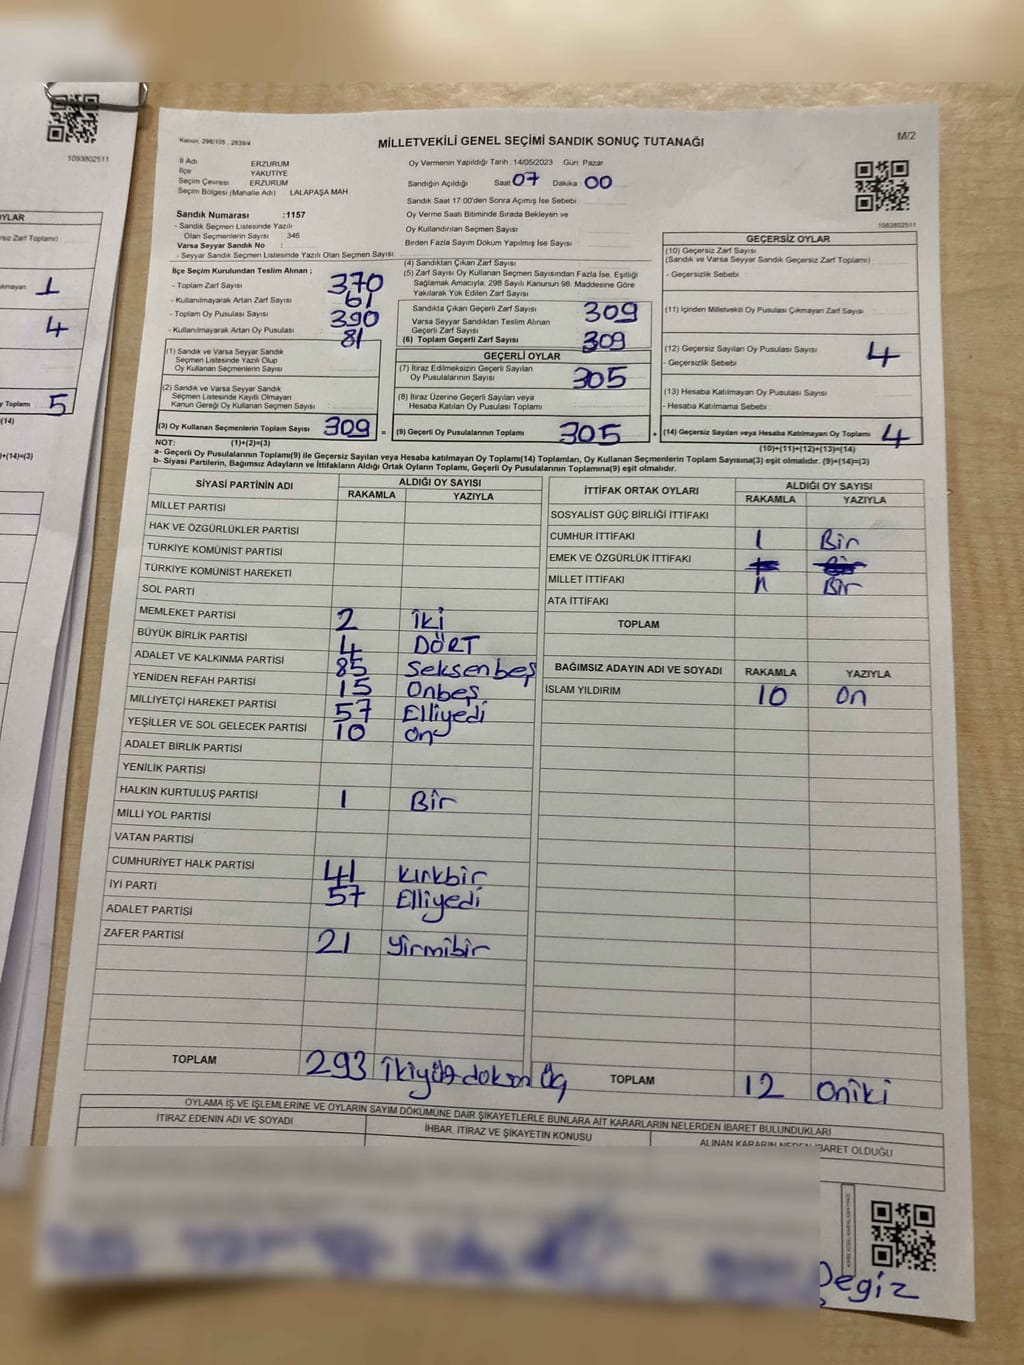 1093802511
OYLAR
1
4
5
Kanun: 298/105 , 2839/4
MİLLETVEKİLİ GENEL SEÇİMİ SANDIK SONUÇ TUTANAĞI
M/2
1083802511
İl Adı ERZURUM
İlçe YAKUTİYE
Seçim Çevresi ERZURUM
Seçim Bölgesi (Mahalle Adı) LALAPAŞA MAH
Sandık Numarası :1157
- Sandık Seçmen Listesinde Yazılı
Olan Seçmenlerin Sayısı 346
Varsa Seyyar Sandık No :
- Seyyar Sandık Seçmen Listesinde Yazılı Olan Seçmen Sayısı
Oy Vermenin Yapıldığı Tarih :14/05/2023 Gün Pazar
Sandığın Açıldığı Saat 07 Dakika 00
Sandık Saat 17.00'den Sonra Açılmış İse Sebebi
Oy Verme Saati Bitiminde Sırada Bekleyen ve
Oy Kullandırılan Seçmen Sayısı
Birden Fazla Sayım Döküm Yapılmış İse Sayısı
İlçe Seçim Kurulundan Teslim Alınan ;
- Toplam Zarf Sayısı 370
- Kullanılmayarak Artan Zarf Sayısı 61
- Toplam Oy Pusulası Sayısı 390
- Kullanılmayarak Artan Oy Pusulası 81
(1) Sandık ve Varsa Seyyar Sandık
Seçmen Listesinde Yazılı Olup
Oy Kullanan Seçmenlerin Sayısı
(2) Sandık ve Varsa Seyyar Sandık
Seçmen Listesinde Kayıtlı Olmayan
Kanun Gereği Oy Kullanan Seçmen Sayısı
(3) Oy Kullanan Seçmenlerin Toplam Sayısı 309 =
(4) Sandıktan Çıkan Zarf Sayısı
(5) Zarf Sayısı Oy Kullanan Seçmen Sayısından Fazla İse, Eşitliği
Sağlamak Amacıyla; 298 Sayılı Kanunun 98. Maddesine Göre
Yakılarak Yok Edilen Zarf Sayısı
Sandıkta Çıkan Geçerli Zarf Sayısı 309
Varsa Seyyar Sandıktan Teslim Alınan
Geçerli Zarf Sayısı
(6) Toplam Geçerli Zarf Sayısı 309
GEÇERLİ OYLAR
(7) İtiraz Edilmeksizin Geçerli Sayılan
Oy Pusulalarının Sayısı 305
(8) İtiraz Üzerine Geçerli Sayılan veya
Hesaba Katılan Oy Pusulası Toplamı
(9) Geçerli Oy Pusulalarının Toplamı 305 +
GEÇERSİZ OYLAR
(10) Geçersiz Zarf Sayısı
(Sandık ve Varsa Seyyar Sandık Geçersiz Zarf Toplamı)
- Geçersizlik Sebebi
(11) İçinden Milletvekili Oy Pusulası Çıkmayan Zarf Sayısı
(12) Geçersiz Sayılan Oy Pusulası Sayısı 4
- Geçersizlik Sebebi
(13) Hesaba Katılmayan Oy Pusulası Sayısı
- Hesaba Katılmama Sebebi
(14) Geçersiz Sayılan veya Hesaba Katılmayan Oy Toplamı 4
NOT: (1)+(2)=(3)
(10)+(11)+(12)+(13)=(14)
a- Geçerli Oy Pusulalarının Toplamı(9) ile Geçersiz Sayılan veya Hesaba katılmayan Oy Toplamı(14) Toplamları, Oy Kullanan Seçmenlerin Toplam Sayısına(3) eşit olmalıdır. (9)+(14)=(3)
b- Siyasi Partilerin, Bağımsız Adayların ve İttifakların Aldığı Ortak Oyların Toplamı, Geçerli Oy Pusulalarının Toplamına(9) eşit olmalıdır.
SİYASİ PARTİNİN ADI ALDIĞI OY SAYISI
RAKAMLA YAZIYLA
MİLLET PARTİSİ
HAK VE ÖZGÜRLÜKLER PARTİSİ
TÜRKİYE KOMÜNİST PARTİSİ
TÜRKİYE KOMÜNİST HAREKETİ
SOL PARTİ
MEMLEKET PARTİSİ 2 iki
BÜYÜK BİRLİK PARTİSİ 4 DÖRT
ADALET VE KALKINMA PARTİSİ 85 Seksenbeş
YENİDEN REFAH PARTİSİ 15 Onbeş
MİLLİYETÇİ HAREKET PARTİSİ 57 Elliyedi
YEŞİLLER VE SOL GELECEK PARTİSİ 10 on
ADALET BİRLİK PARTİSİ
YENİLİK PARTİSİ
HALKIN KURTULUŞ PARTİSİ 1 Bir
MİLLİ YOL PARTİSİ
VATAN PARTİSİ
CUMHURİYET HALK PARTİSİ 41 kırkbir
İYİ PARTİ 57 Elliyedi
ADALET PARTİSİ
ZAFER PARTİSİ 21 yirmibir
TOPLAM 293 ikiyüzdoksan üç
İTTİFAK ORTAK OYLARI ALDIĞI OY SAYISI
RAKAMLA YAZIYLA
SOSYALİST GÜÇ BİRLİĞİ İTTİFAKI
CUMHUR İTTİFAKI 1 Bir
EMEK VE ÖZGÜRLÜK İTTİFAKI
MİLLET İTTİFAKI Bir
ATA İTTİFAKI
TOPLAM
BAĞIMSIZ ADAYIN ADI VE SOYADI RAKAMLA YAZIYLA
İSLAM YILDIRIM 10 on
TOPLAM 12 Oniki
OYLAMA İŞ VE İŞLEMLERİNE VE OYLARIN SAYIM DÖKÜMÜNE DAİR ŞİKAYETLERLE BUNLARA AİT KARARLARIN NELERDEN İBARET BULUNDUKLARI
İTİRAZ EDENİN ADI VE SOYADI İHBAR, İTİRAZ VE ŞİKAYETİN KONUSU ALINAN KARARIN NEDEN İBARET OLDUĞU